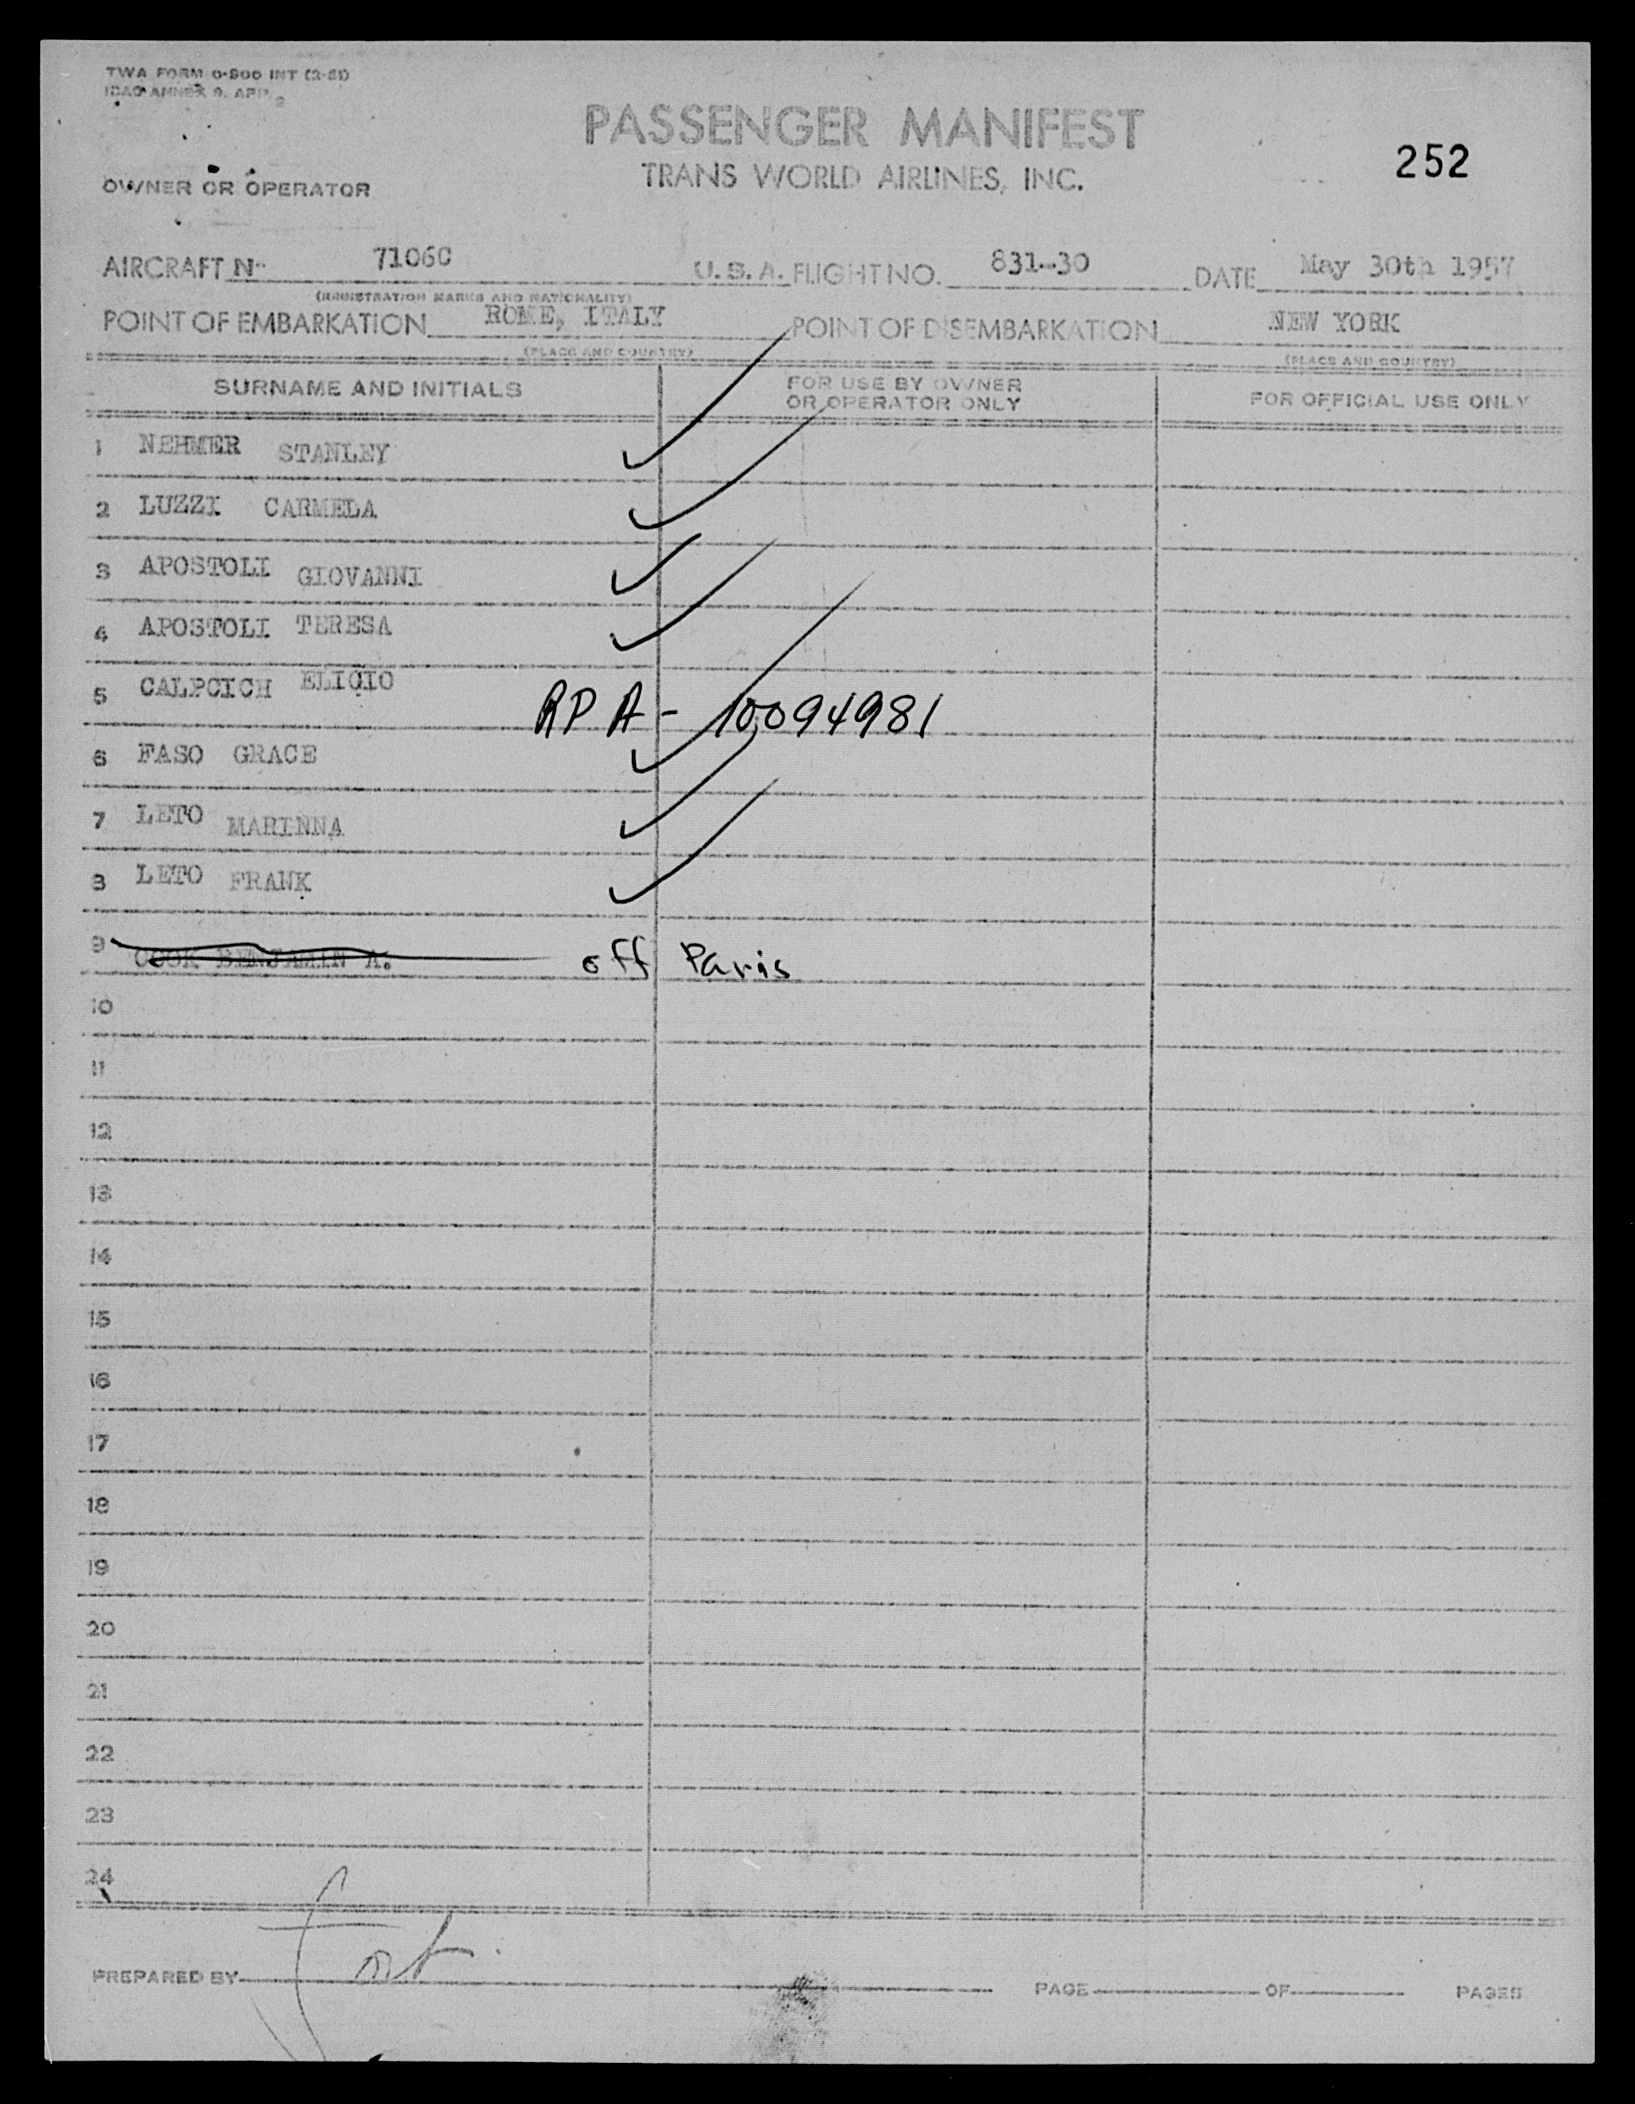 TWA FORM O-800 INT (2-51)
ICAO ANNEX 9. APP. 2
PASSENGER MANIFEST
252
TRANS WORLD AIRLINES, INC.
OWNER OR OPERATOR
AIRCRAFT No 7106C U.S.A. FLIGHT NO. 831-30 DATE May 30th 1957
(REGISTRATION MARKS AND NATIONALITY)
POINT OF EMBARKATION ROME, ITALY POINT OF DISEMBARKATION NEW YORK
(PLACE AND COUNTRY) (PLACE AND COUNTRY)
SURNAME AND INITIALS FOR USE BY OWNER OR OPERATOR ONLY FOR OFFICIAL USE ONLY
1 NEHMER STANLEY ✓
2 LUZZI CARMELA ✓
3 APOSTOLI GIOVANNI ✓
4 APOSTOLI TERESA ✓
5 CALPCICH ELIGIO RPA - 10094981
6 FASO GRACE ✓
7 LETO MARINNA ✓
8 LETO FRANK ✓
9 COOK BENJAMIN A. off Paris
10
11
12
13
14
15
16
17
18
19
20
21
22
23
24
PREPARED BY PAGE OF PAGES